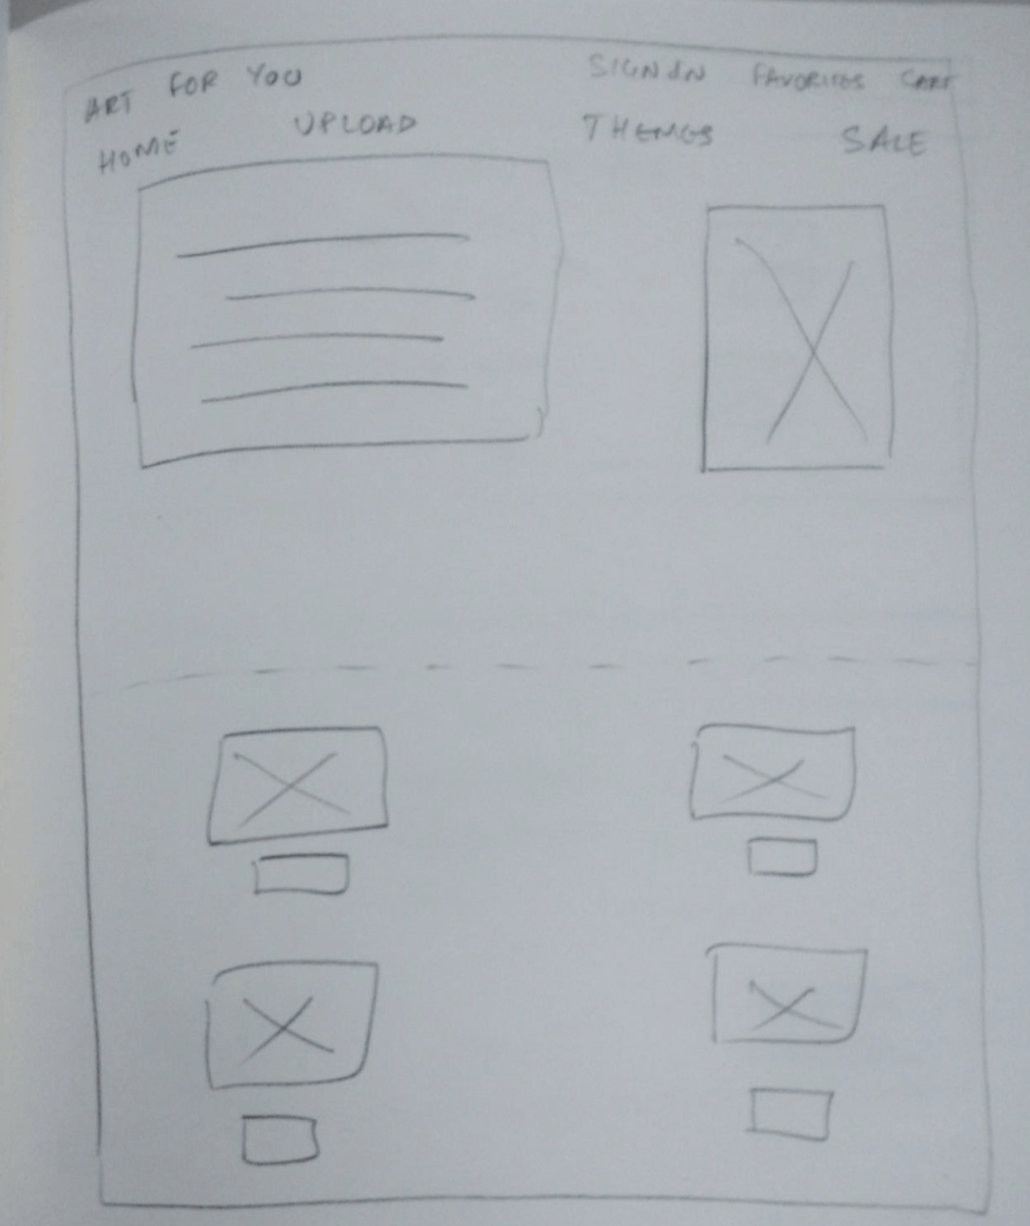 ART FOR YOU SIGN IN FAVORITES CART
HOME UPLOAD THEMES SALE